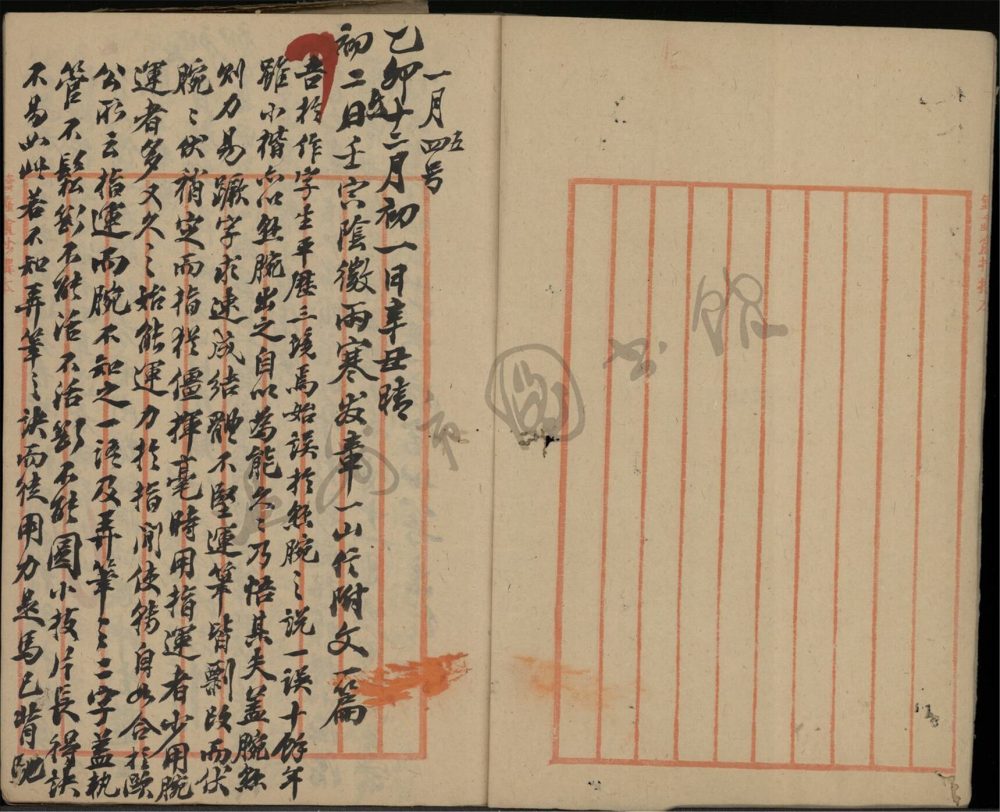 一月四号
五
乙卯十二月初一日辛丑晴
初二日壬寅陰微雨寒发章一山信附文一篇
吾於作字生平歷三境焉始误於懸腕之说一误十餘年
雖小楷亦以懸腕出之自以為能久之乃悟其失盖腕懸
则力易蹶字求速成结體不堅運筆皆剽改而伏
腕之伏稍定而指犹僵揮毫時用指運者少用腕
運者多又久之始能運力於指间使转自如合於歐
公所云指運而腕不知之一语及弄筆之二字盖執
管不鬆斷不能活不活斷不能圆小技片長得訣
不易如此若不知弄筆之訣而徒用力是焉已背馳
圖书館